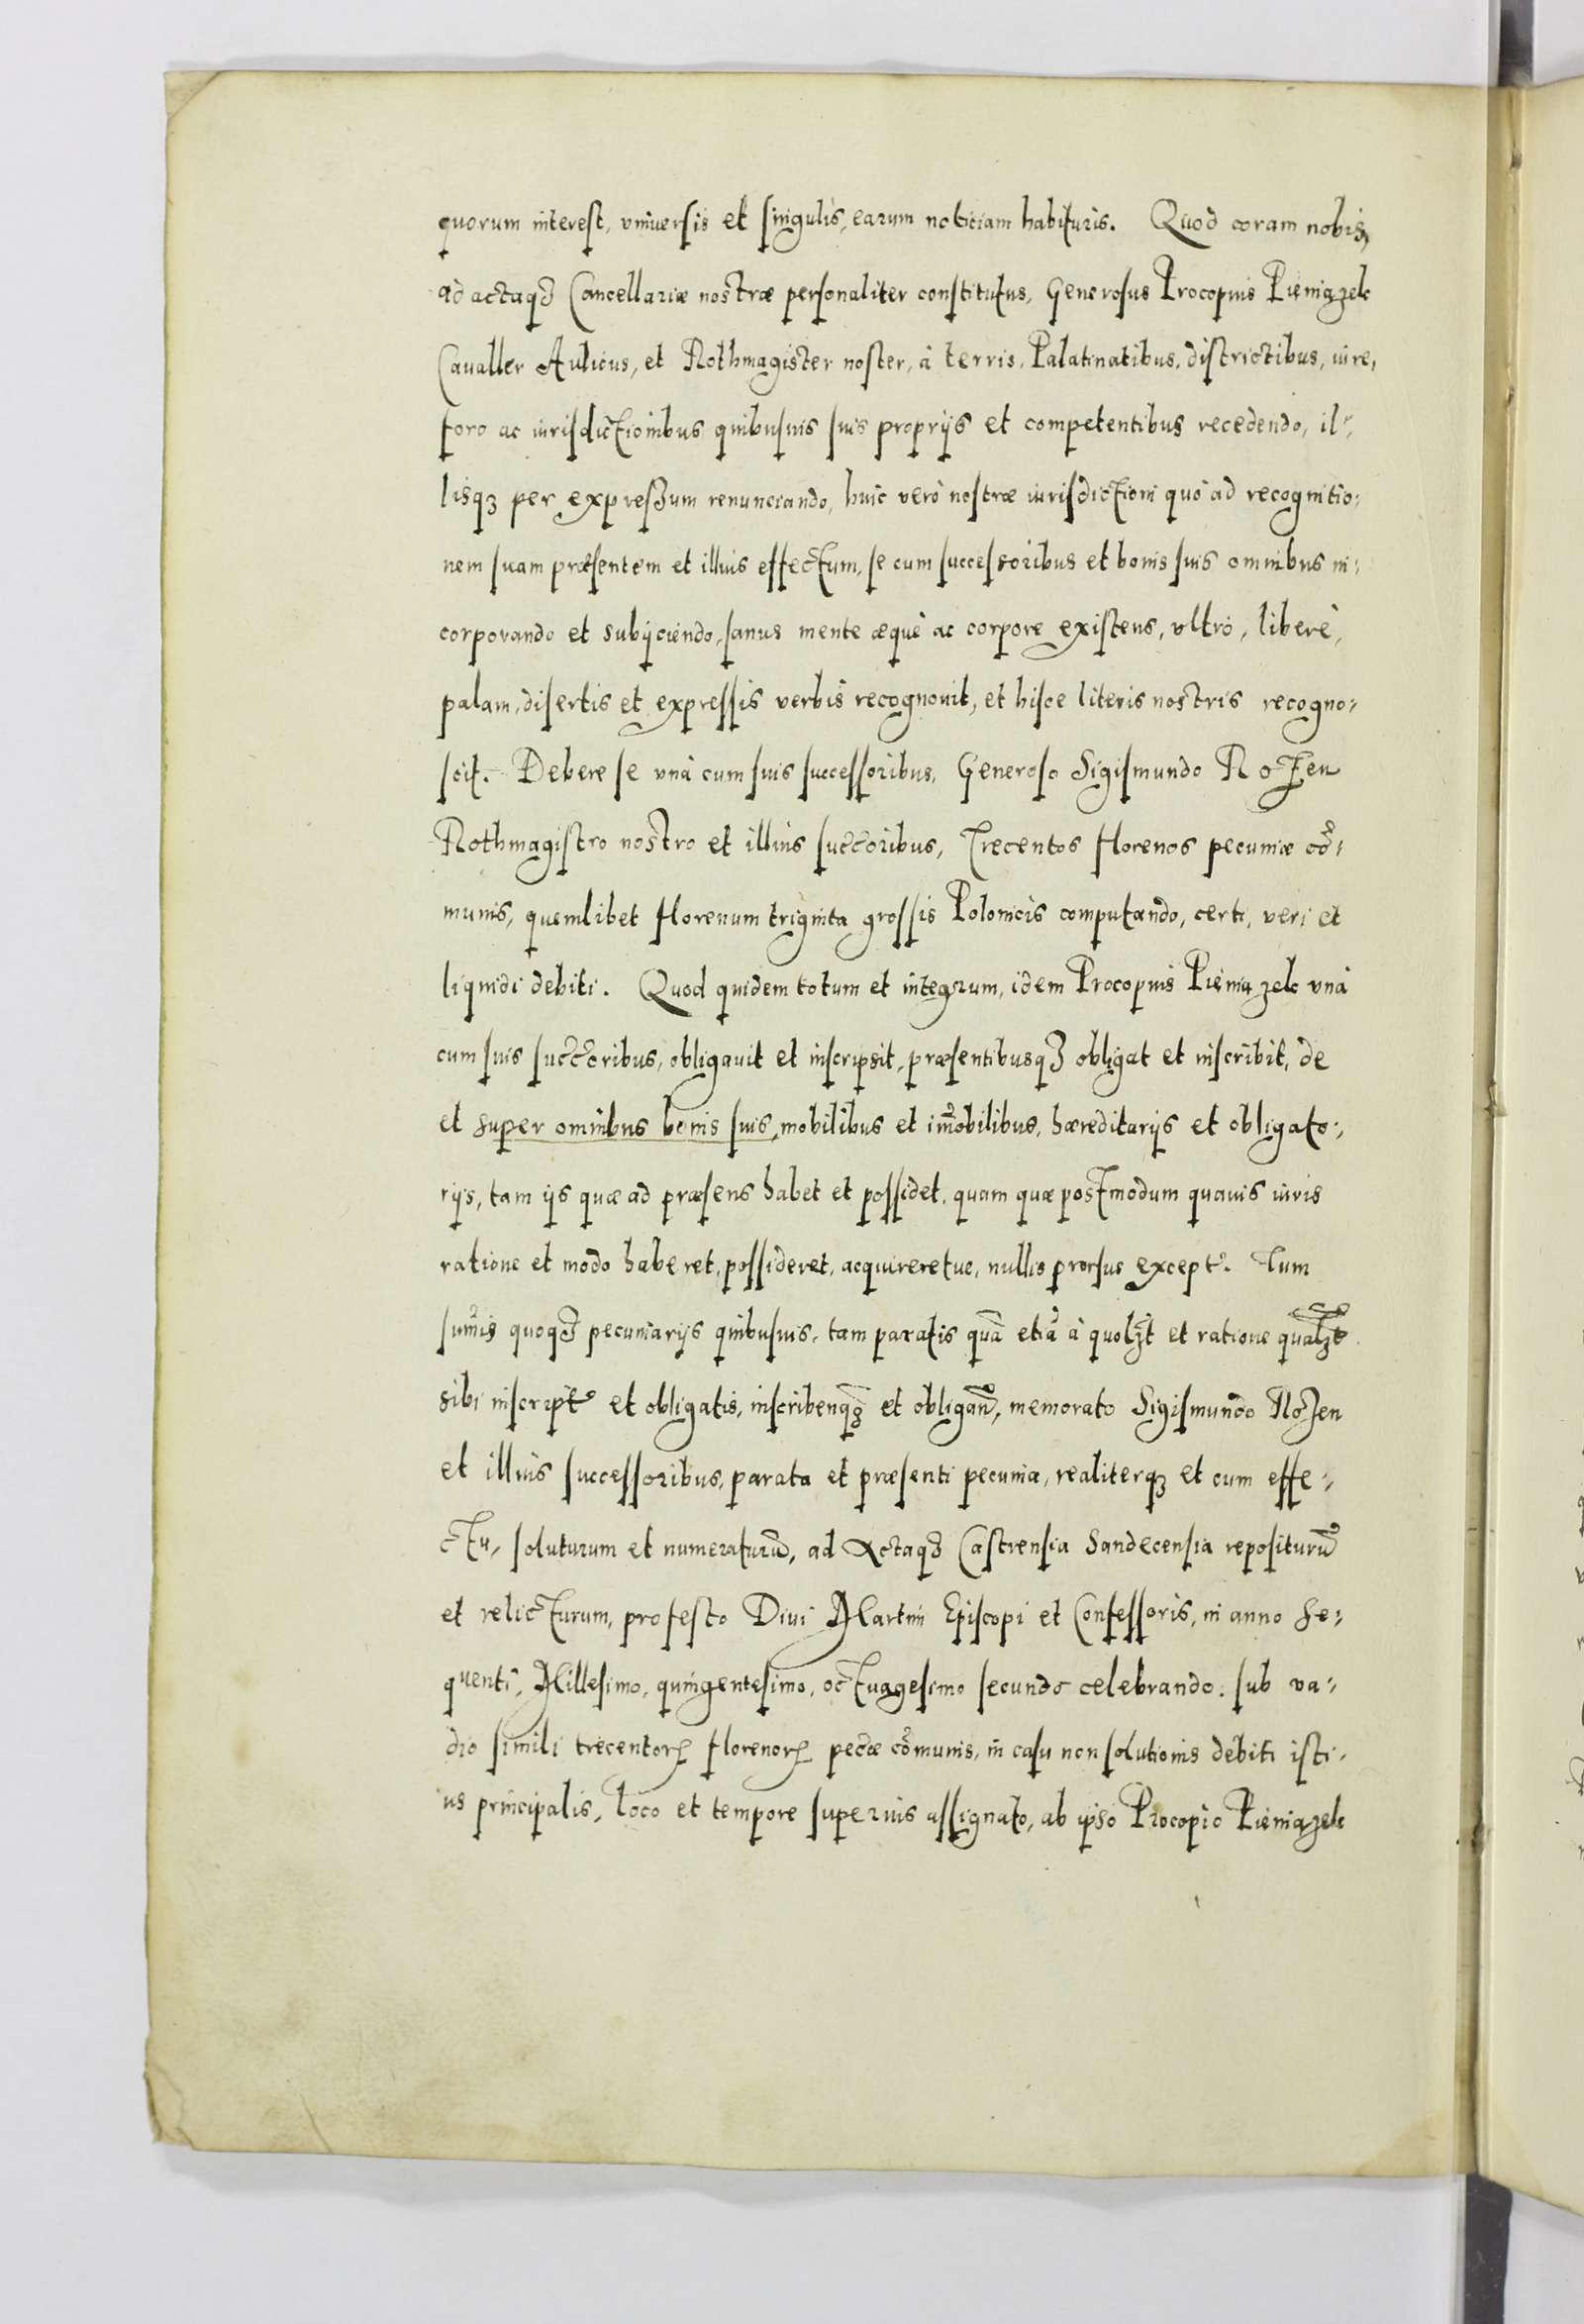 quorum interest, vniuersis et singulis, earum noticiam habituris. Quod coram nobis,
ad actaqȝ Cancellariæ nostræ personaliter constitutus, Generosus Procopius Pieniązek
Caualler Aulicus, et Rothmagister noster, à terris, Palatinatibus, districtibus, iure,
foro ac iurisdictionibus quibusuis suis proprijs et competentibus recedendo, il-
lisqȝ per expressum renunciando, huic verò nostræ iurisdictioni quo ad recognitio-
nem suam præsentem et illius effectum, se cum successoribus et bonis suis omnibus in-
corporando et subijciendo, sanus mente æquè ac corpore existens, vltrò, liberè,
palam, disertis et expressis verbis recognouit, et hisce literis nostris recogno-
scit. Debere se vnà cum suis successoribus, Generoso Sigismundo Rożen
Rothmagistro nostro et illius succ̃oribus, Trecentos florenos pecuniæ cõ-
munis, quemlibet florenum triginta grossis Polonicis computando, certi, veri et
liquidi debiti. Quod quidem totum et integrum, idem Procopius Pieniązek vnà
cum suis succ̃oribus, obligauit et inscripsit, præsentibusqȝ obligat et inscribit, de
et super omnibus bonis suis, mobilibus et im̃obilibus, hæreditarijs et obligato-
rijs, tam ijs quæ ad præsens habet et possidet, quam quæ postmodum quauis iuris
ratione et modo haberet, possideret, acquireretue, nullis prorsus except̃. Tum
sum̃is quoqȝ pecuniarijs quibusuis, tam paratis quã etiã à quolȝt et ratione qualȝt
sibi inscript̃ et obligatis, inscribenqȝ et obligañ, memorato Sigismundo Rożen
et illius successoribus, parata et præsenti pecunia, realiterqȝ et cum effe-
ctu, soluturum et numeraturũ, ad Actaqȝ Castrensia Sandecensia repositurũ
et relicturum, pro festo Diui Martini Episcopi et Confessoris, in anno se-
quenti, Millesimo, quingentesimo, octuagesimo secundo celebrando. sub va-
dio simili trecentorꝝ florenorꝝ pec̃æ cõmunis, in casu non solutionis debiti isti-
us principalis, loco et tempore superius assignato, ab ipso Procopio Pieniązek